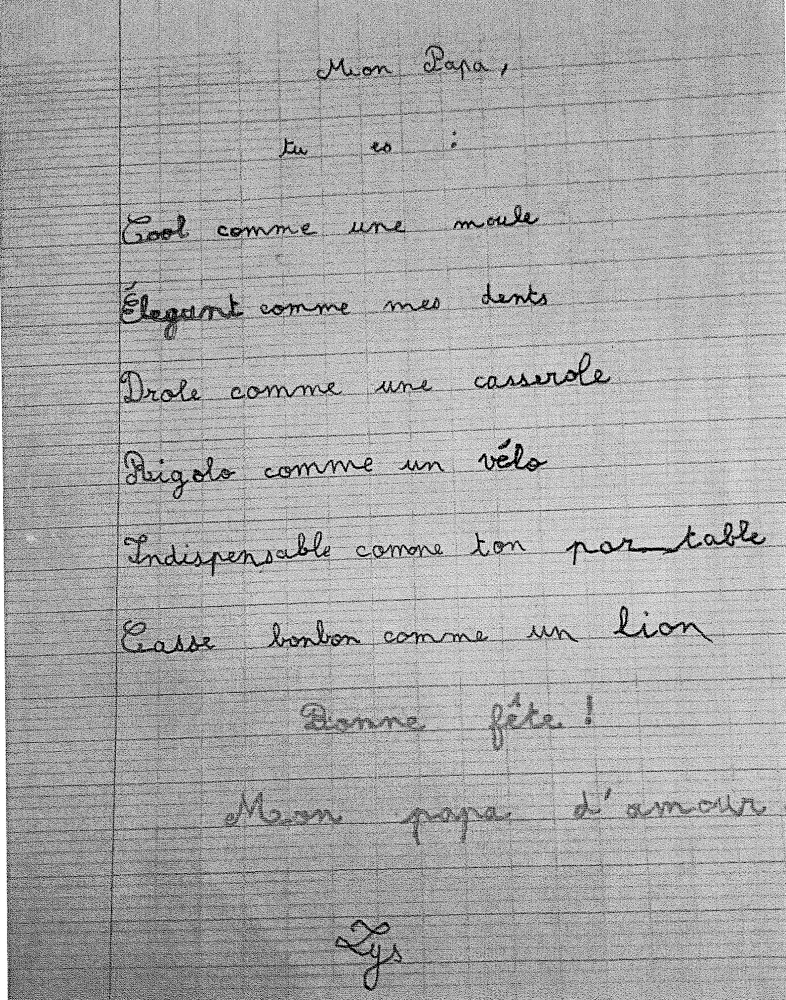 Mon Papa,
tu es :
Cool comme une moule
Élegant comme mes dents
Drole comme une casserole
Rigolo comme un vélo
Indispensable comme ton por_table
Casse bonbon comme un lion
Bonne fête !
Mon papa d'amour
Lys